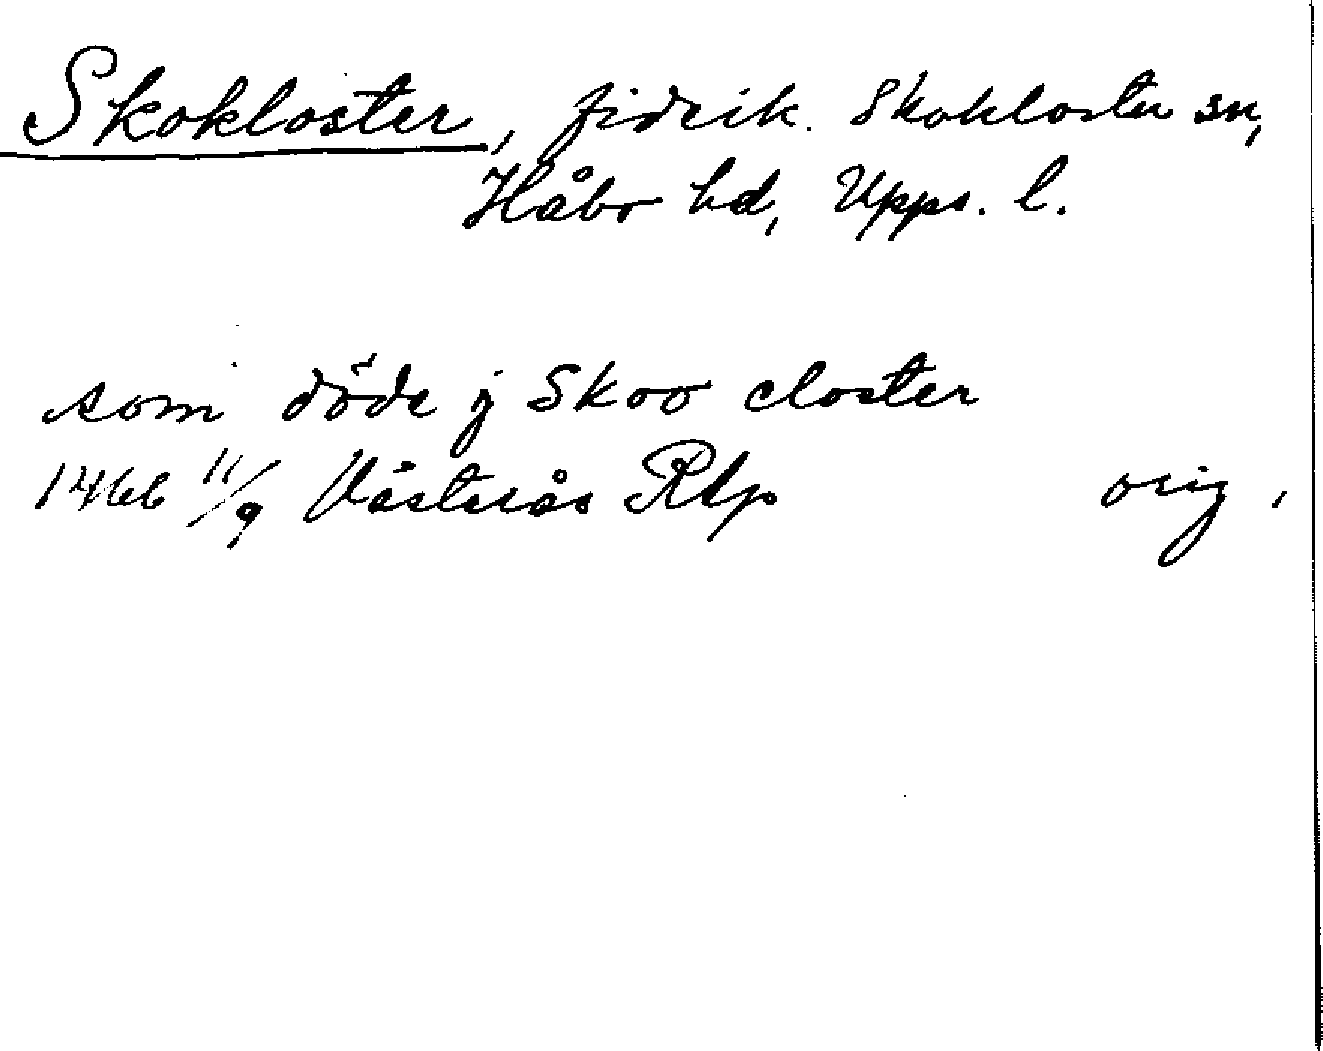 Skokloster, fideik. Skokloster sn,
Håbo hd, Upps. l.
som döde j Skoo closter
1466 11/9 Västerås RAp orig.